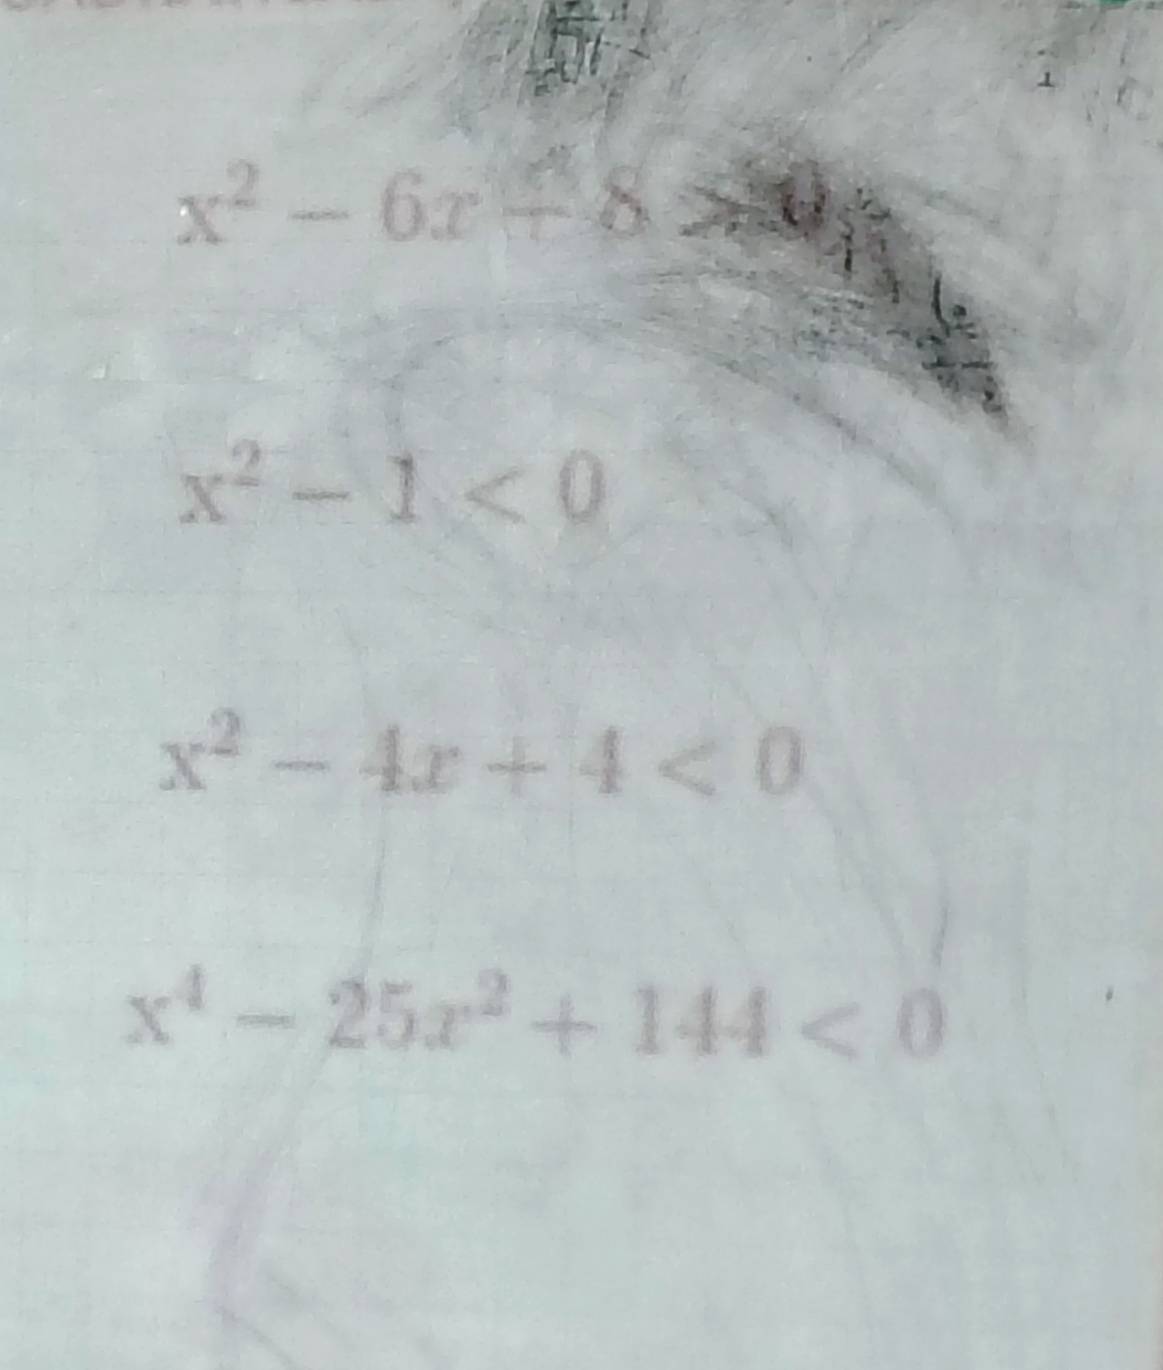 x² − 6x + 8 > 0
x² − 1 < 0
x² − 4x + 4 < 0
x⁴ − 25x² + 144 < 0